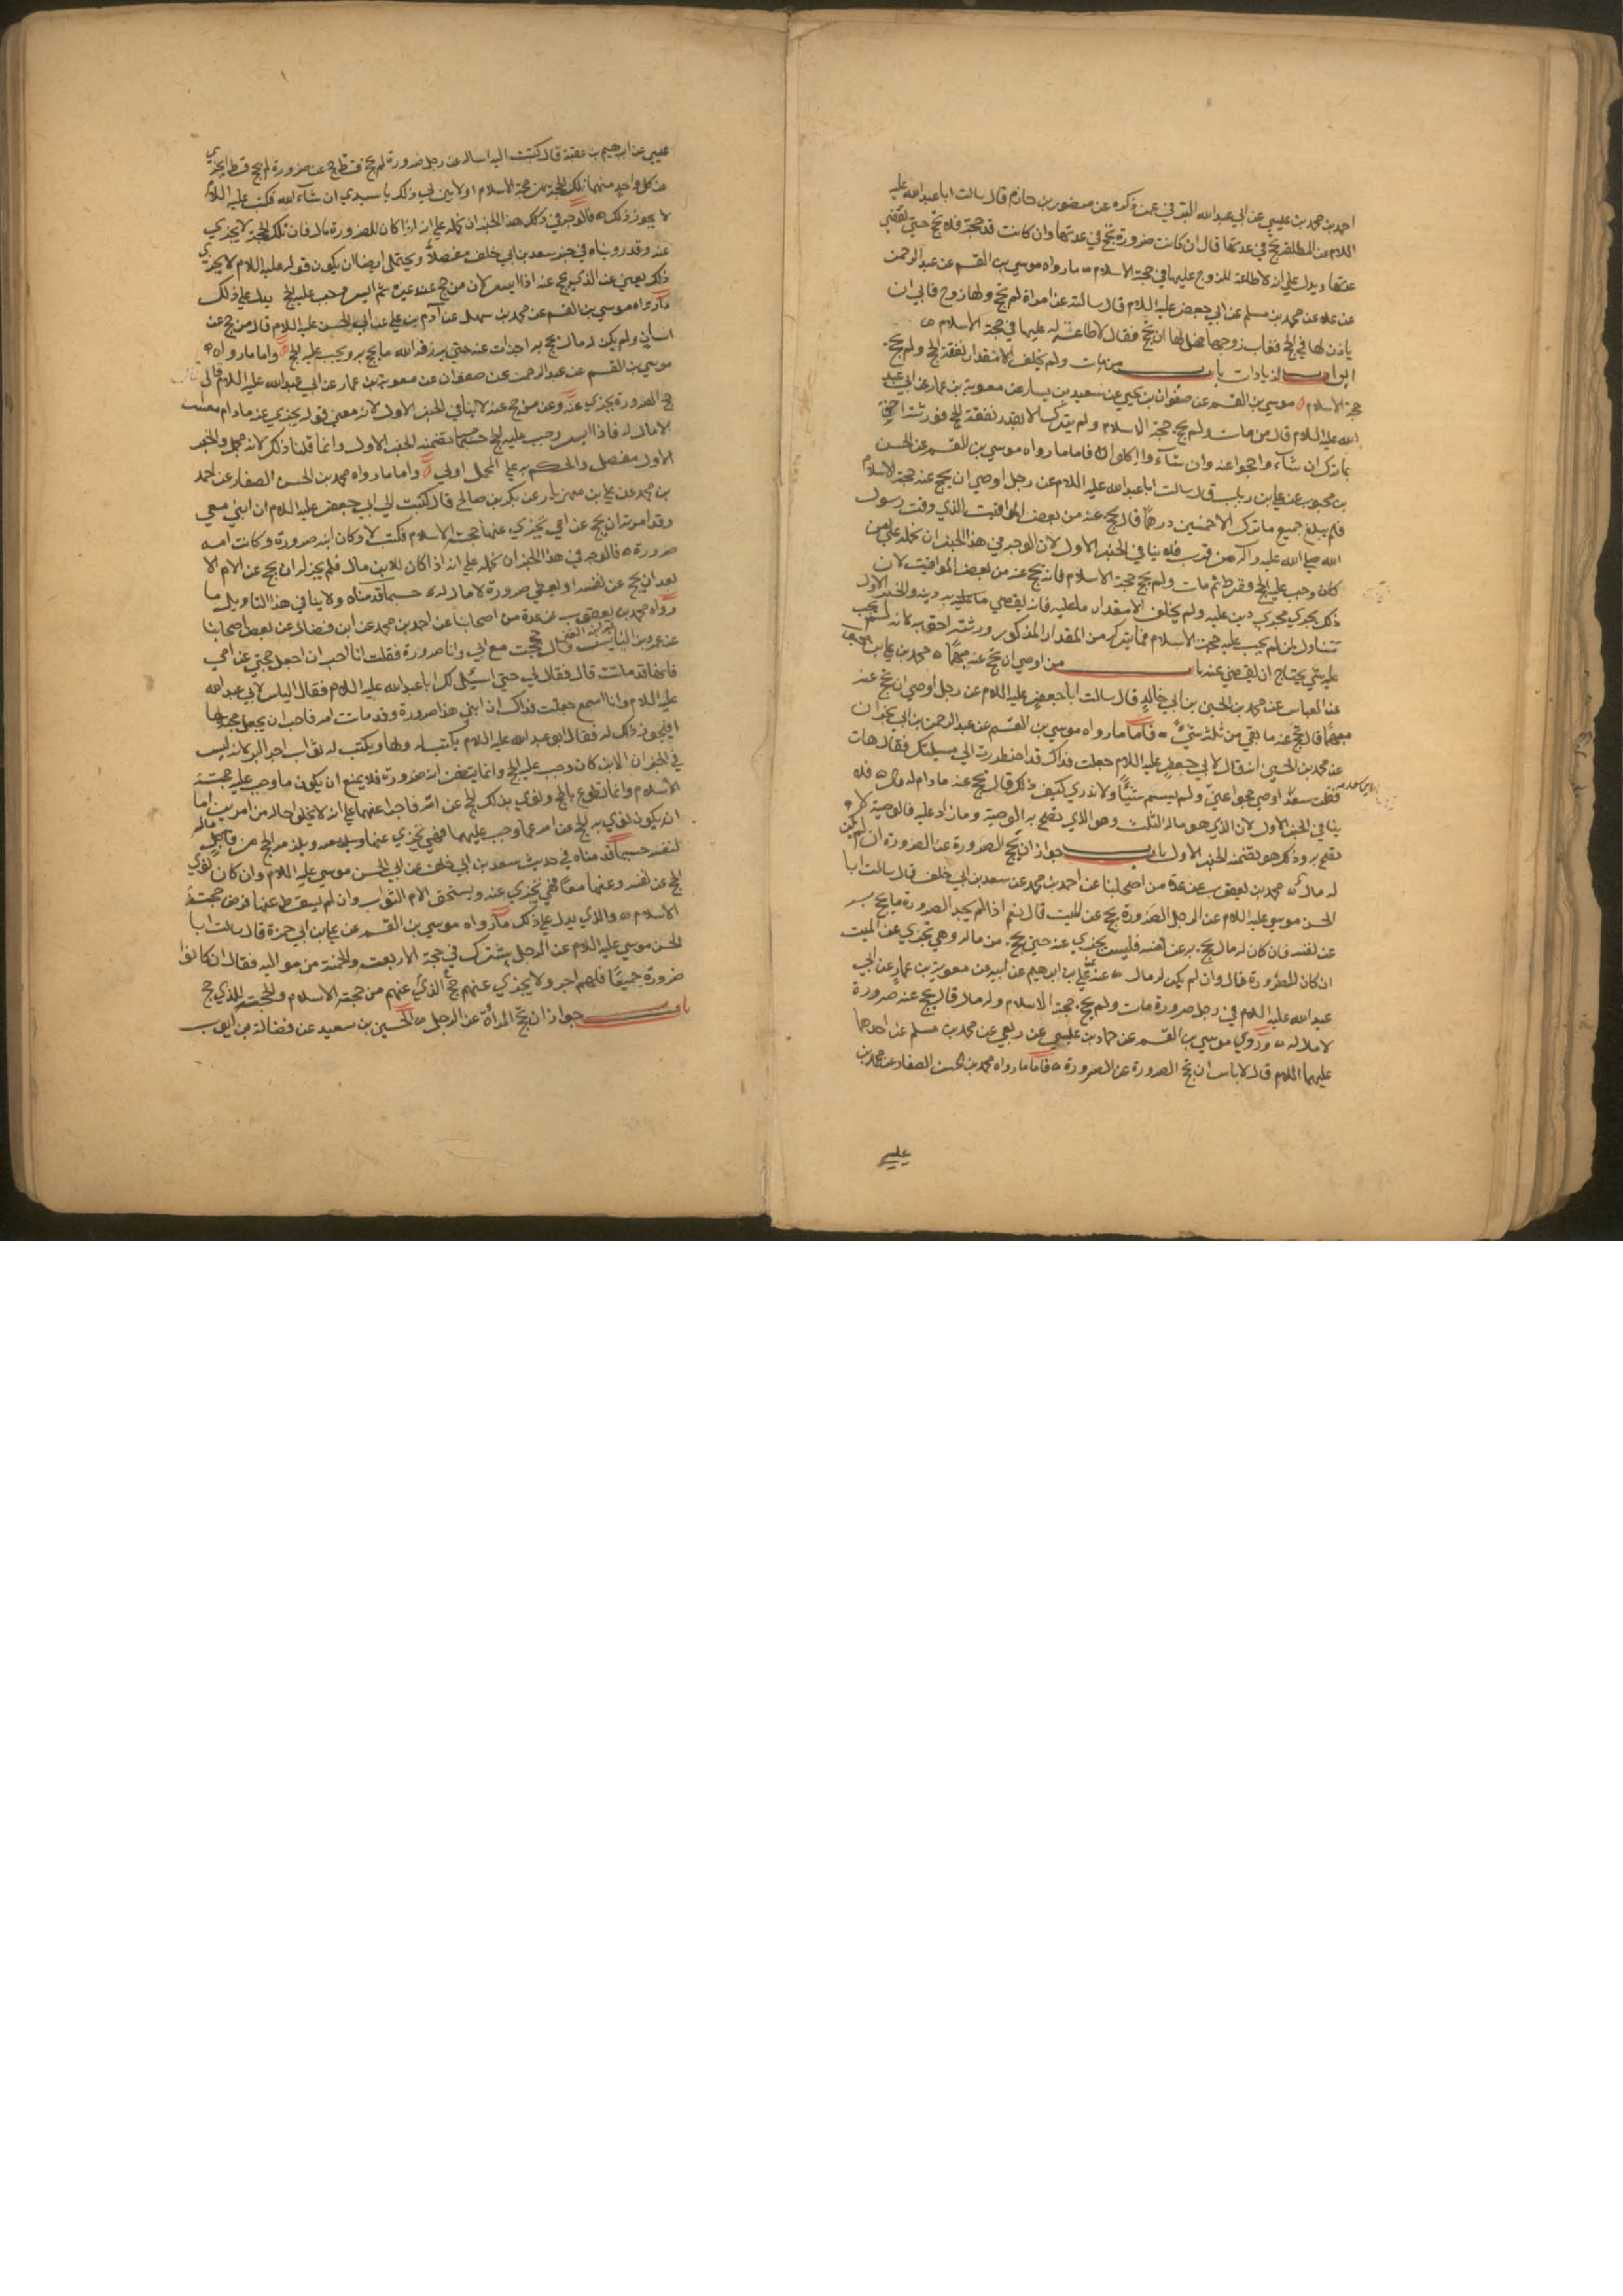 احمد بن محمد بن عيسي عن ابي عبدالله البرقي عمن ذكره عن منصور بن حازم قال سالت ابا عبدالله عليه
اللام عن المطلقة تحج في عدتها قال ان كانت صرورة تحج في عدتها وان كانت قد حجت فلا تحج حتي تقضي
عدتها ويدل علي انه لاطاعة للزوج عليها في حجة الاسلام ما رواه موسي بن القسم عن عبدالرحمن
عن علا عن محمد بن مسلم عن ابي جعفر عليه اللام قال سالته عن امراة لم تحج ولها زوج فابي ان
ياذن لها في الحج فغاب زوجها فهل لها ان تحج فقال لاطاعة له عليها في حجة الاسلام
ابواب الزيادات باب من مات ولم يخلف الا مقدار نفقة الحج ولم يحج
حجة الاسلام موسي بن القسم عن صفوان بن يحيي عن سعيد بن يسار عن معوية بن عمار عن ابي عبد
الله عليه اللام قال من مات ولم يحج حجة الاسلام ولم يترك الا بقدر نفقة الحج فورثته احق
بما ترك ان شآء واحجوا عنه وان شآء وا اكلوا فاما ما رواه موسي بن القسم عن الحسن
بن محبوب عن علي بن رياب قال سالت ابا عبدالله عليه اللام عن رجل اوصي ان يحج عنه حجة الاسلام
فلم يبلغ جميع ما ترك الا خمسين درهما قال يحج عنه من بعض المواقيت الذي وقت رسول
الله صلي الله عليه وآله من قرب فلا ينافي الخبر الاول لان الوجه في هذا الخبر ان نحمله علي من
كان وجب عليه الحج وفرط ثم مات ولم يحج حجة الاسلام فانه يحج عنه من بعض المواقيت لان
ذلك يجري مجري دين عليه ولم يخلف الا مقدار ما عليه فانه يقضي ما عليه به دينه والخبر الاول
تتناول لمن لم يجب عليه حجة الاسلام فما يترك من المقدار المذكور ورثته احق به لانه لم يجب
عليه شي يحتاج ان يقضي عنه باب من اوصي ان يحج عنه مبهما محمد بن علي بن محبوب
عن العباس عن محمد بن الحسين بن ابي خالد قال سالت ابا جعفر عليه اللام عن رجل اوصي ان يحج عنه
مبهما قال يحج عنه ما بقي من ثلثه شيء فاما ما رواه موسي بن القسم عن عبدالرحمن بن ابي نجران
عن محمد بن الحسين انه قال لابي جعفر عليه اللام جعلت فداك قد اضطررت الي مسيلتك فقال هات
فقلت سعد اوصي حجوا عني ولم يسم شيئا ولا ندري كيف ذلك قال يحج عنه ما دام له مال فلا
ينافي الخبر الاول لان الذي هو ماله الثلث وهو الذي تصح به الوصية وما زاد عليه فالوصية لا
تصح به وذلك هو يتضمنه الخبر الاول باب جواز ان يحج الصرورة عن الصرورة ان لم يكن
له مال محمد بن يعقوب عن عدة من اصحابنا عن احمد بن محمد عن سعد بن ابي خلف قال سالت ابا
الحسن موسي عليه اللام عن الرجل الصرورة يحج عن الميت قال نعم اذا لم يجد الصرورة ما يحج به
عن نفسه فان كان له مال يحج به عن نفسه فليس يجزي عنه حتي يحج من ماله وهي تجزي عن الميت
ان كان للصرورة مال وان لم يكن له مال عنه علي بن ابراهيم عن ابيه عن معوية بن عمار عن ابي
عبدالله عليه اللام في رجل صرورة مات ولم يحج حجة الاسلام وله مال قال يحج عنه صرورة
لا مال له وروي موسي بن القسم عن حماد بن عيسي عن ربعي عن محمد بن مسلم عن احدهما
عليهما اللام قال لاباس ان يحج الصرورة عن الصرورة فاما ما رواه محمد بن الحسن الصفار عن محمد بن
عيسي
عيسي عن ابرهيم بن عقبة قال كتبت اليه اساله عن رجل صرورة لم يحج قط حج عن صرورة لم يحج قط ايجزي
عن كل واحد منهما تلك الحجة من حجة الاسلام او لا بين لي ذلك يا سيدي ان شاء الله فكتب عليه اللام
لا يجوز ذلك فالوجه في ذلك هذا الخبر ان نحمله علي انه اذا كان للصرورة مال فان تلك الحجة لا يجزي
عنه وقد روينا ه في خبر سعد بن ابي خلف مفصلا ويحتمل ايضا ان يكون قوله عليه اللام لا يجزي
ذلك يعني عن الذي يحج عنه اذا ايسر لان من حج عنه غيره ثم ايسر وجب عليه الحج يدل علي ذلك
ما رواه موسي بن القسم عن محمد بن سهل عن آدم بن علي عن ابي الحسن عليه اللام قال من حج عن
انسان ولم يكن له مال يحج به اجزات عنه حتي يرزقه الله ما يحج به ويجب عليه الحج واما ما رواه
موسي بن القسم عن عبدالرحمن عن صفوان عن معوية بن عمار عن ابي عبدالله عليه اللام قال
حج الصرورة يجزي عنه وعن من حج عنه لاينافي الخبر الاول لانه معني قوله يجزي عنه ما دام معسرا
لا مال له فاذا ايسر وجب عليه الحج حسبما تضمنه الخبر الاول وانما قلنا ذلك لانه مجمل والخبر
الاول مفصل والحكم به علي المجمل اولي واما ما رواه محمد بن الحسن الصفار عن احمد
بن محمد عن علي بن مهزيار عن بكر بن صالح قال كتبت الي ابي جعفر عليه اللام ان ابني معي
وقد امرته ان يحج عن امي يجزي عنها حجة الاسلام فكتب لا وكان ابنه صرورة وكانت امه
صرورة فالوجه في هذا الخبر ان نحمله علي انه اذا كان للابن مال فلم يجز له ان يحج عن الام الا
بعد ان يحج عن نفسه او يعطي صرورة لا مال له حسبما قدمناه ولا ينافي هذا التاويل ما
رواه محمد بن يعقوب عن عدة من اصحابنا عن احمد بن محمد عن ابن فضال عن بعض اصحابنا
عن عمرو بن الياس قال حججت مع ابي وانا صرورة فقلت انا احب ان اجعل حجتي عن امي
فانها قد ماتت قال فقال لي حتي اسئل لك ابا عبدالله عليه اللام فقال الياس لابي عبدالله
عليه اللام وانا اسمع جعلت فداك ان ابني هذا صرورة وقد ماتت امه فاحب ان يجعل حجته لها
افيجوز ذلك له فقال ابو عبدالله عليه اللام يكتب له ولها ويكتب له ثواب اجر البر لانه ليس
في الخبر ان الابن كان وجب عليه الحج وانما يتضمن انه صرورة فلا يمنع ان يكون ما وجب عليه حجة
الاسلام وانما تطوع بالحج ونوي بذلك الحج عن امه فاجزا عنهما علي انه لا يخلو حاله من امرين اما
ان يكون نوي به الحج عن امه عما وجب عليها فهي تجزي عنها ويلزمه الحج من قابل من ماله
لنفسه حسبما قدمناه في حديث سعد بن ابي خلف عن ابي الحسن موسي عليه اللام وان كان نوي
الحج عن نفسه وعنها معا فهي تجزي عنه ويستحق الام الثواب وان لم يسقط عنها فرض حجة
الاسلام والذي يدل علي ذلك ما رواه موسي بن القسم عن علي بن ابي حمزة قال سالت ابا
الحسن موسي عليه اللام عن الرجل يشترك في حجة الاربعة والخمسة من مواليه فقال ان كانوا
صرورة جميعا فلهم اجر ولا يجزي عنهم حج الذي عنهم من حجة الاسلام والحجة للذي حج
باب جواز ان تحج المرأة عن الرجل الحسين بن سعيد عن فضالة بن ايوب